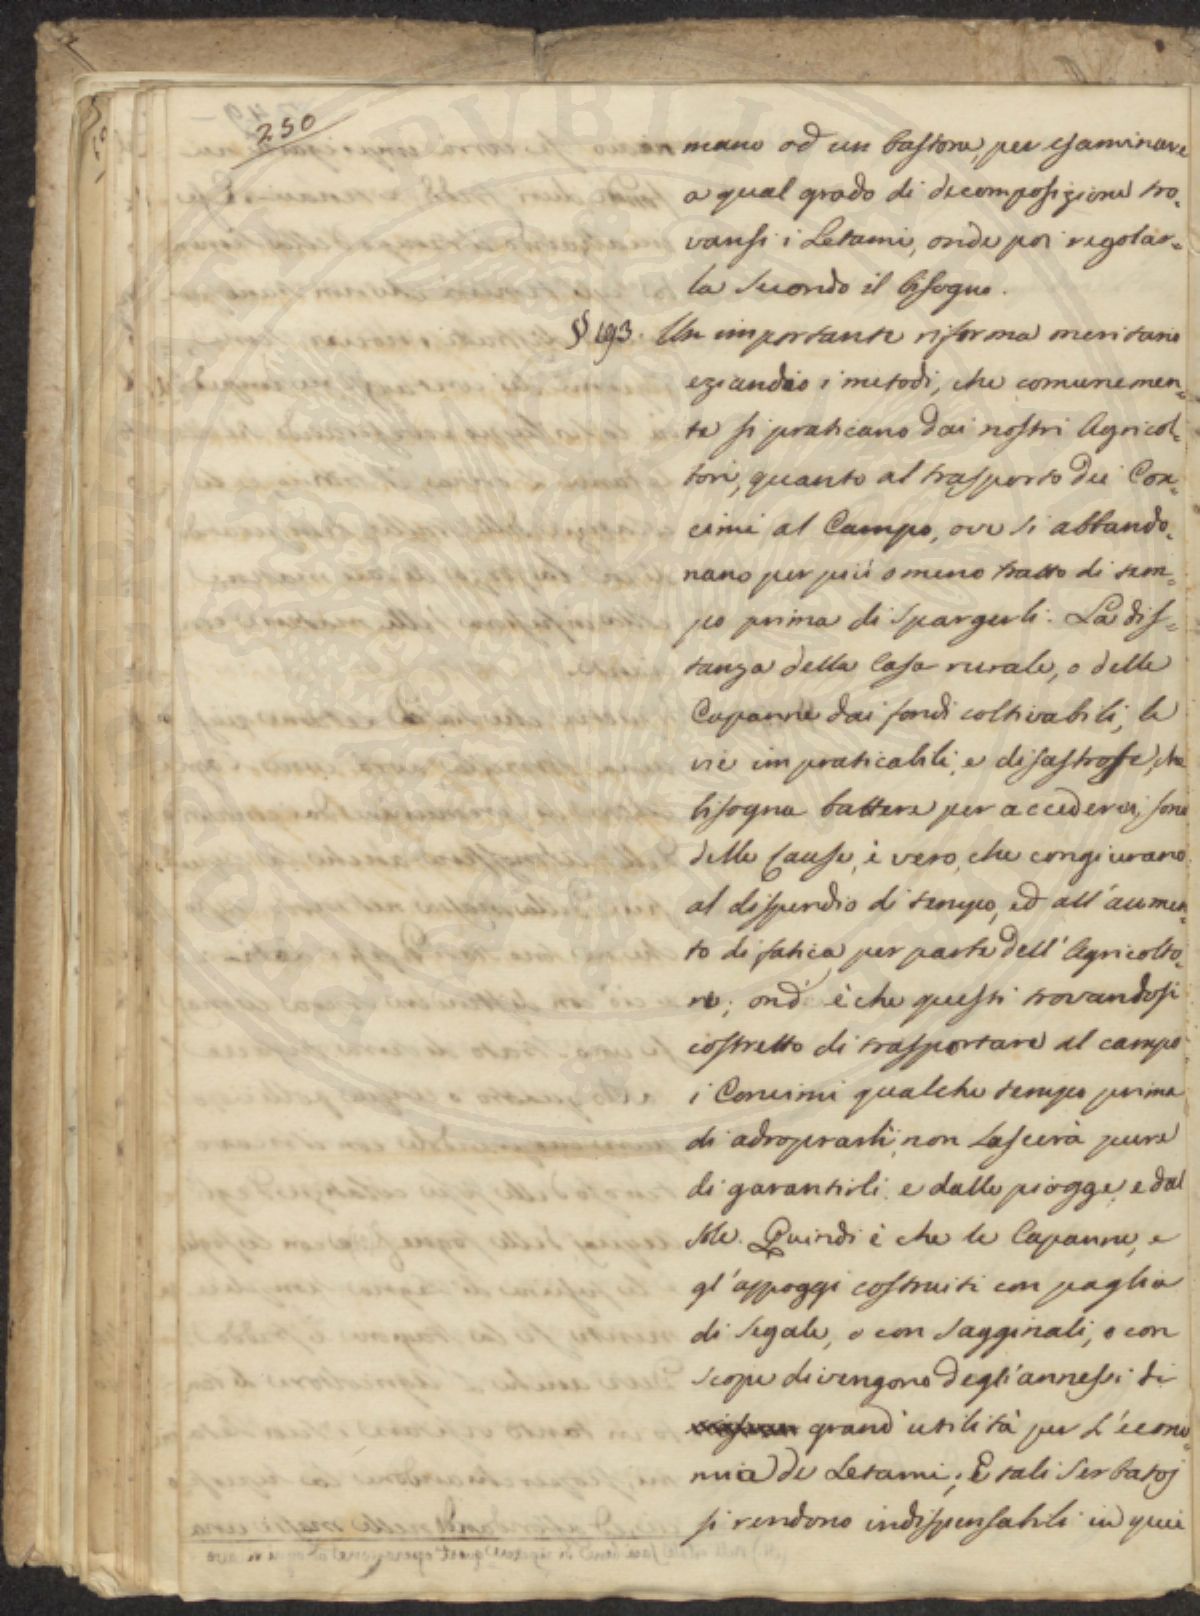 250
mano od un bastone, per esaminare
a qual grado di decomposizione tro-
vansi i Letami, onde poi regolar-
la secondo il bisogno.
§ 193. Un importante riforma meritano
eziandio i metodi, che comunemen-
te si praticano dai nostri Agricol-
tori, quanto al trasporto dei Con-
cimi al Campo, ove si abbando-
nano per più o meno tratto di tem-
po prima di spargerli. La dis-
tanza della Casa rurale, o delle
Capanne dai fondi coltivabili, le
vie impraticabili, e disastrose, che
bisogna battere per accedervi, sono
delle Cause, è vero, che congiurano
al dispendio di tempo, ed all'aumen-
to di fatica per parte dell'Agricolto-
re; ond' è che questi trovandosi
costretto di trasportare al campo
i Concimi qualche tempo prima
di adroprarli, non lascerà pure
di garantirli e dalle piogge, e dal
Sole. Quindi è che le Capanne, e
gl'appoggi costruiti con paglia
di segale, o con sagginali, o con
scope divengono degl'annessi di
grand'utilità per l'econo-
mia de Letami; E tali serbatoj
si rendono indispensabili in quei